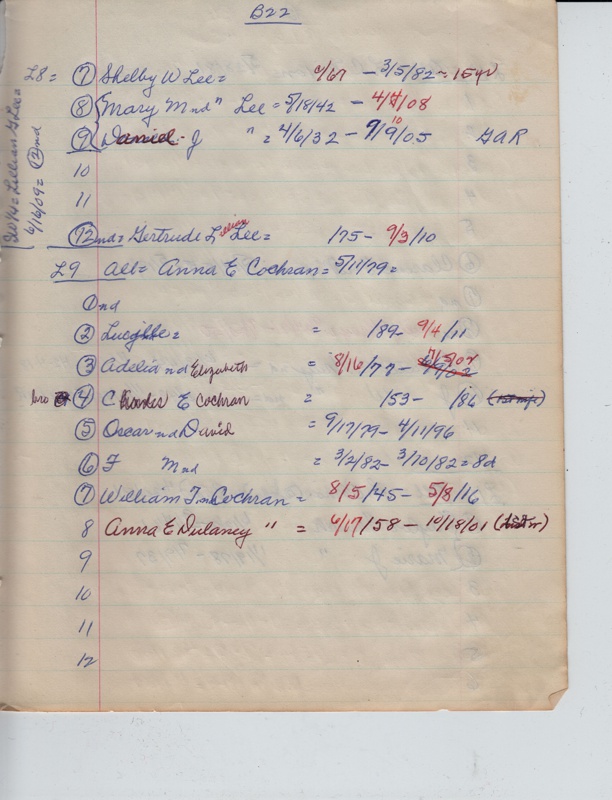 B22
L8 = 7 Shelby W Lee = /67 - 3/5/82 = 15yr
8 Mary M nd " Lee = 5/18/42 - 4/4/08
9 Daniel J " = 4/6/32 - 9/10/05 GAR
10
11
12 nd = Gertrude Lillian Lee = /75 - 9/3/10
L9 All = Anna E Cochran = 5/11/79 =
1 nd
2 Lucille = = /89 - 9/4/11
3 Adelia nd Elizabeth = 8/16/77 - 02
bro 4 Charles E Cochran = /53 - /86
5 Oscar nd David = 9/17/79 - 4/11/96
6 F M nd = 3/2/82 - 3/10/82 = 8d
7 William T nd Cochran = 8/5/45 - 5/8/16
8 Anna E Dulaney " = 6/17/58 - 10/18/01
9
10
11
12
Lillian G Lee =
6/16/09 = 2 nd